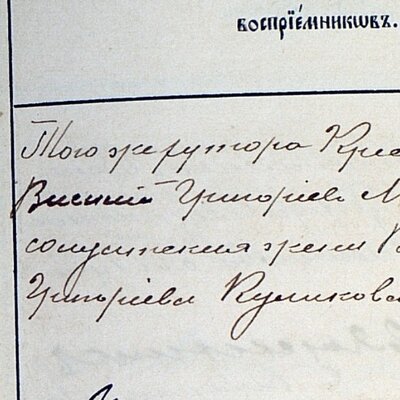 воспрїе́мникѡвъ.
Того же хутора Крес
Василій Григоріевъ М
сопустская жена В
Григоріева Куликова